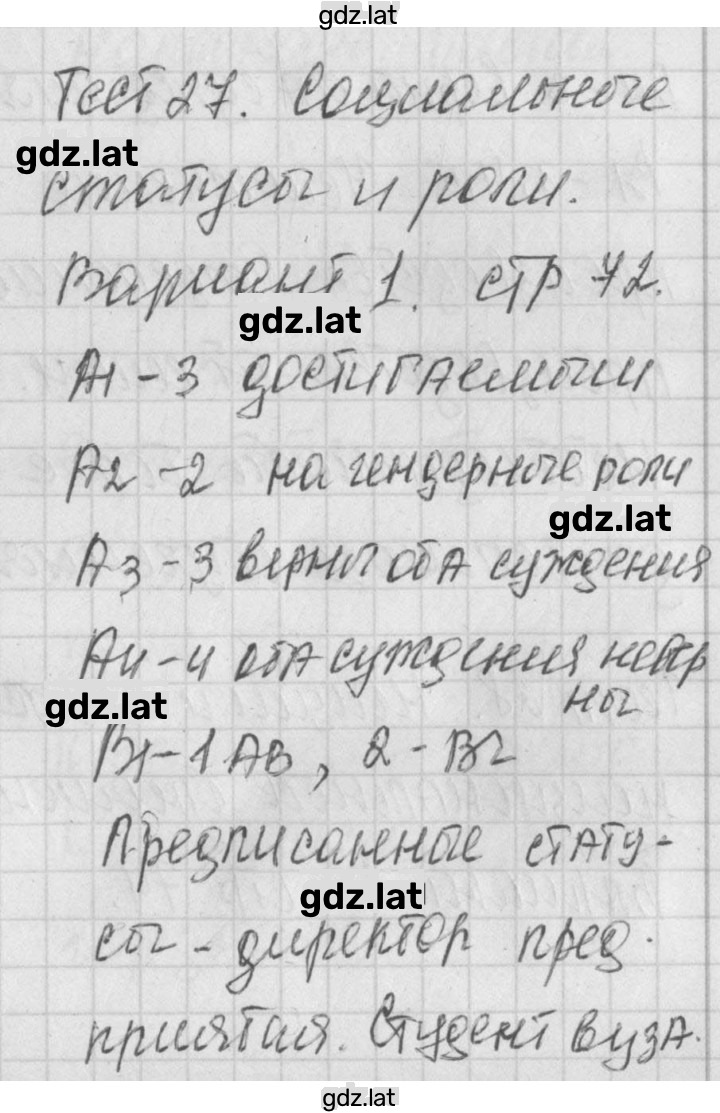 gdz.lat
Тест 27. Социальные
gdz.lat
статусы и роли.
Вариант 1. стр 72.
gdz.lat
А1 - 3 достигаемыми
А2 - 2 на гендерные роли
gdz.lat
А3 - 3 верны оба суждения
А4 - 4 оба суждения невер
gdz.lat
ны
В1 - 1 АВ, 2 - БГ
Предписанные стату-
gdz.lat
сы - директор пред
приятия. Студент вуза.
gdz.lat